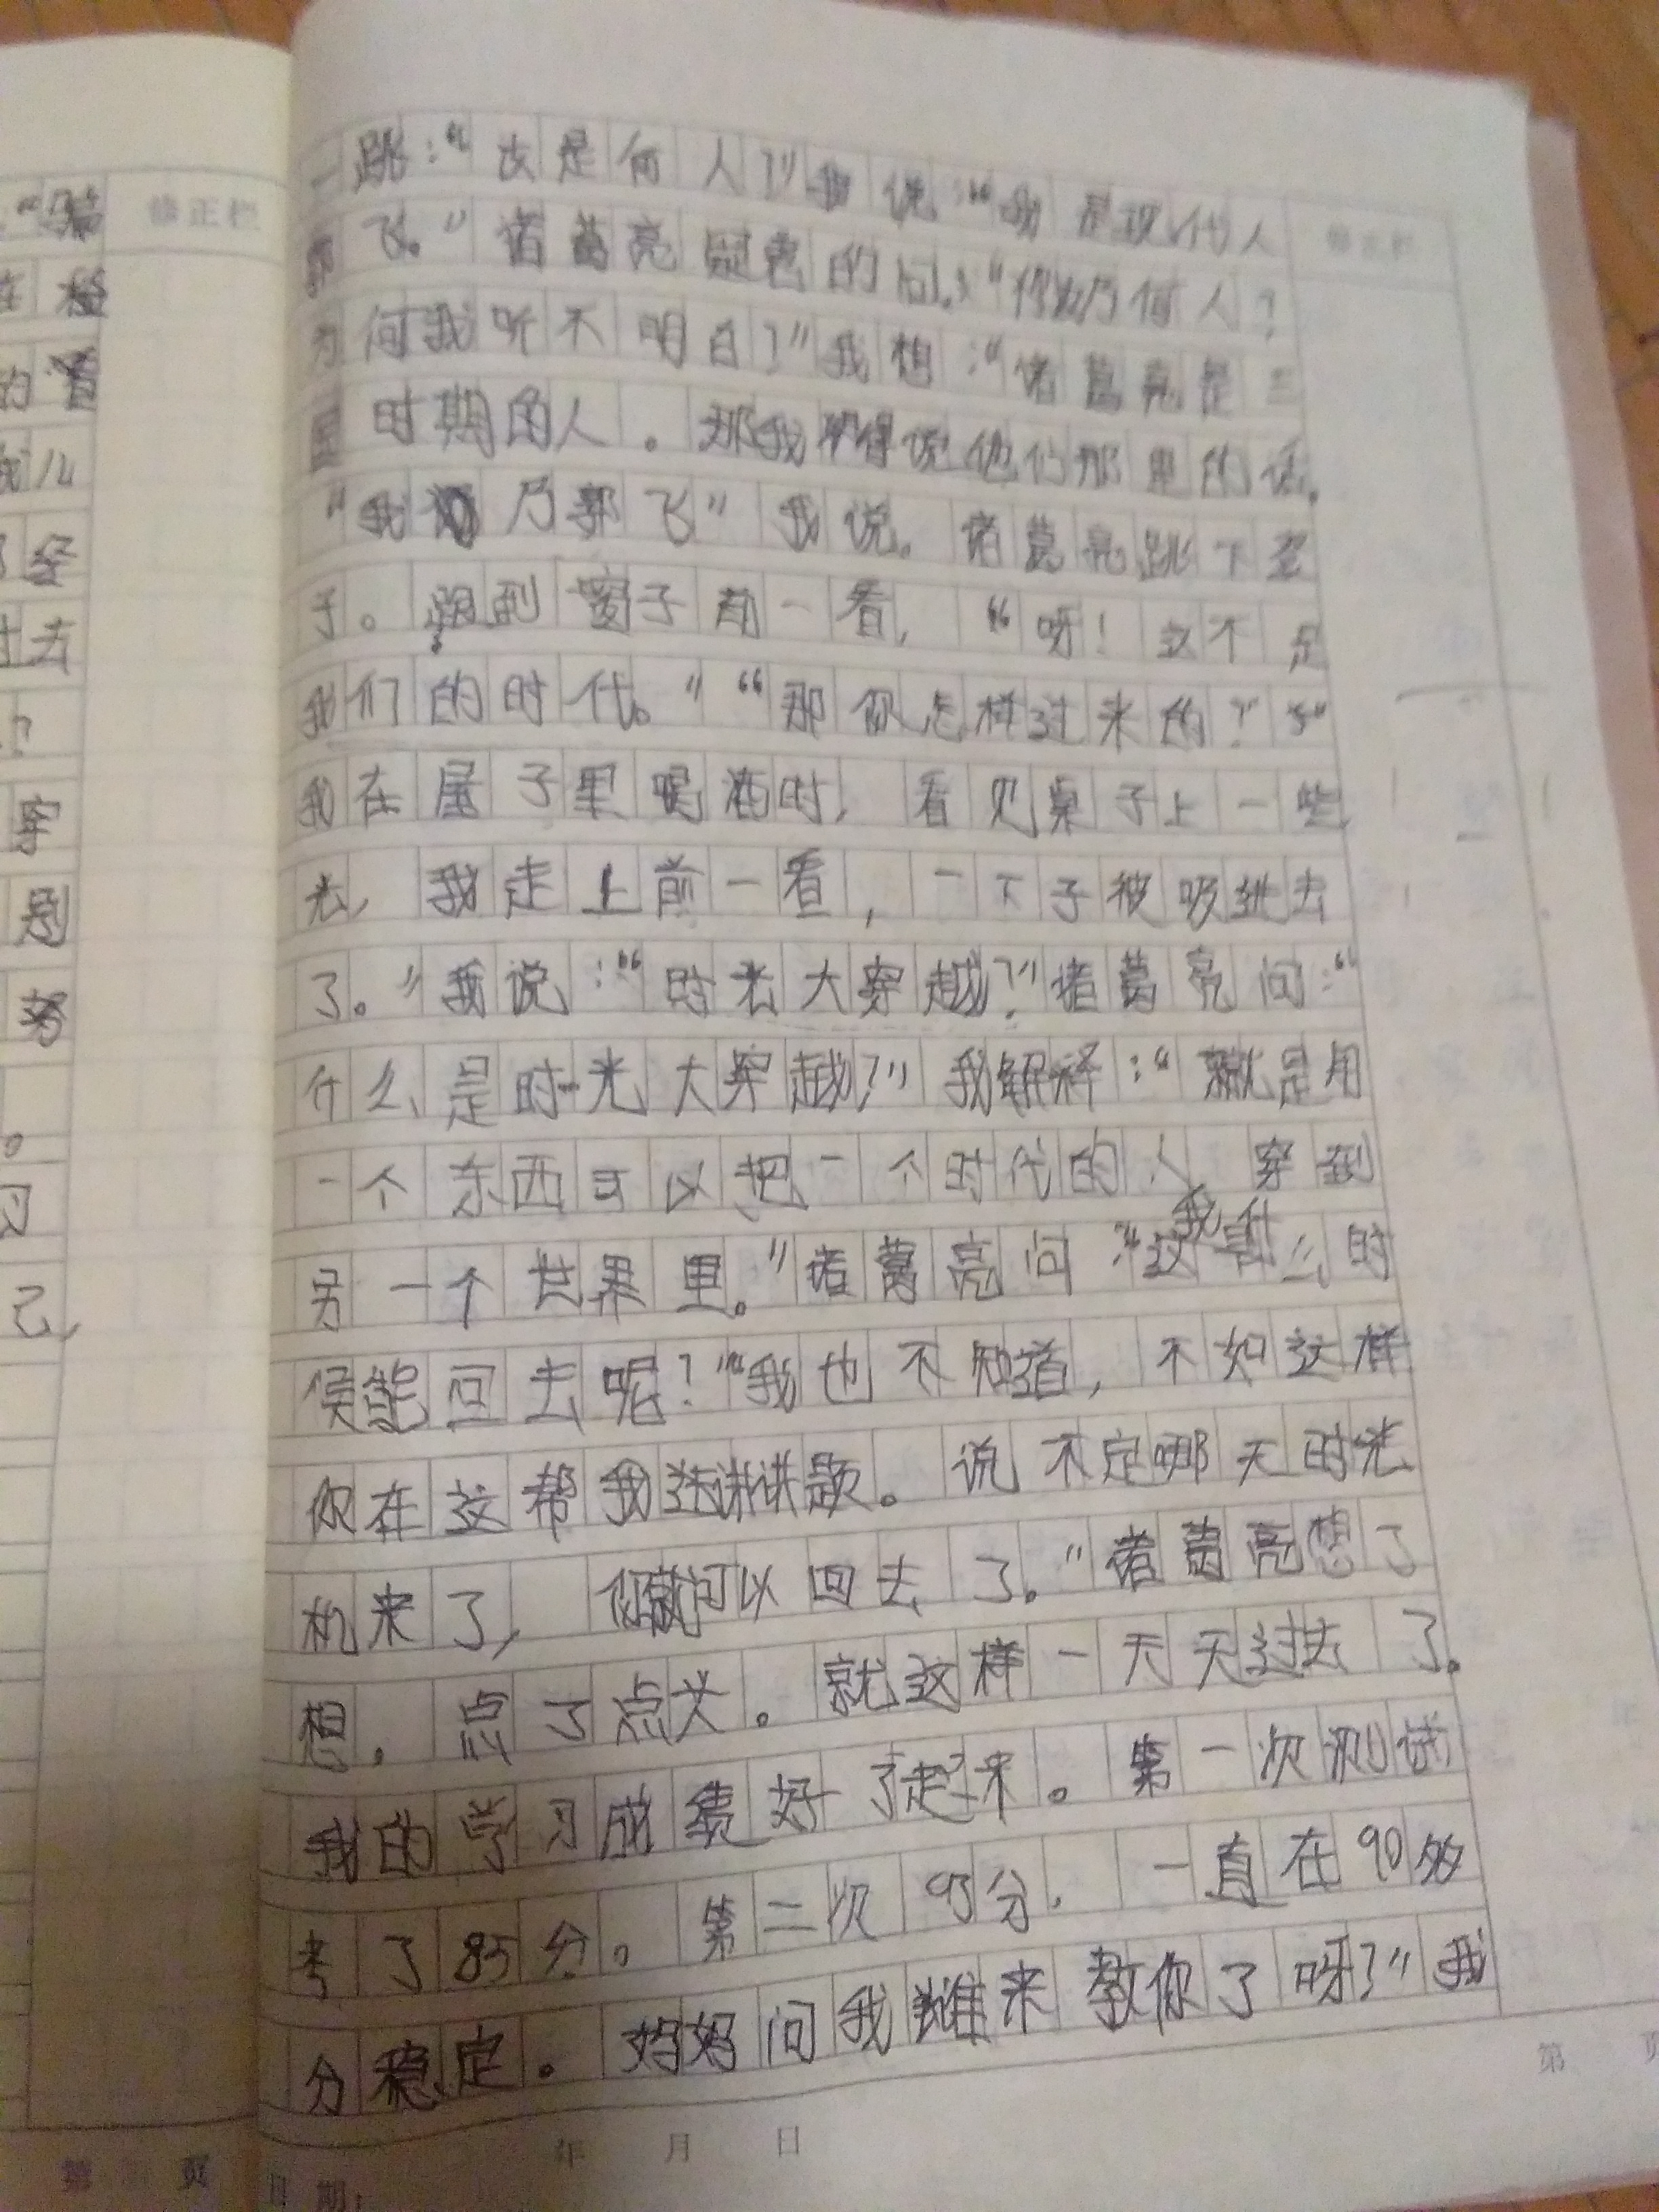 “骗
修正栏
在检
的
我儿
经
过去
？
穿
题
努
。
习
己，
第 页
修正栏
一跳：“次是何人？”我说：“我是现代人
郭飞。”诸葛亮疑惑的问：“你乃何人？
为何我听不明白？”我想：“诸葛亮是三
国时期的人。那我得说他们那里的话。
“我乃郭飞”我说。诸葛亮跳下桌
子。跑到窗子前一看，“呀！这不是
我们的时代。”“那你怎样过来的？”“
我在屋子里喝酒时，看见桌子上一些
光，我走上前一看，一下子被吸进去
了。”我说：“时光大穿越？”诸葛亮问：“
什么是时光大穿越？”我解释：“就是用
一个东西可以把一个时代的人穿到
另一个世界里。”诸葛亮问：“我什么时
候能回去呢？”“我也不知道，不如这样
你在这帮我讲讲题。说不定哪天时光
机来了，你就可以回去了。”诸葛亮想了
想。点了点头。就这样一天天过去了。
我的学习成绩好了起来。第一次测试
考了85分。第二次95分，一直在90多
分稳定。妈妈问我谁来教你了呀？”我
年 月 日
日期：
第 页